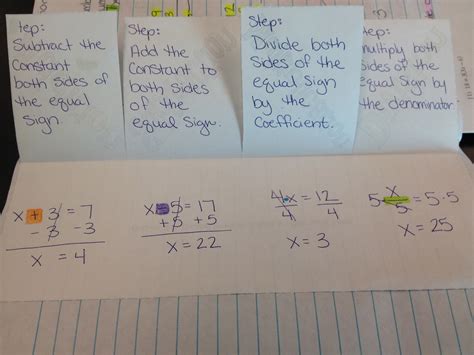 tep:
Subtract the
Constant
both sides of
the equal
sign.
Step:
Add the
Constant to
both sides
of the
equal Sign.
Step:
Divide both
Sides of the
equal Sign
by the
Coefficient.
tep:
multiply both
sides of the
equal Sign by
the denominator.
x + 3 = 7
- 3 -3
x = 4
x - 5 = 17
+5 +5
x = 22
4·x = 12
4 4
x = 3
5· x = 5·5
5
x = 25